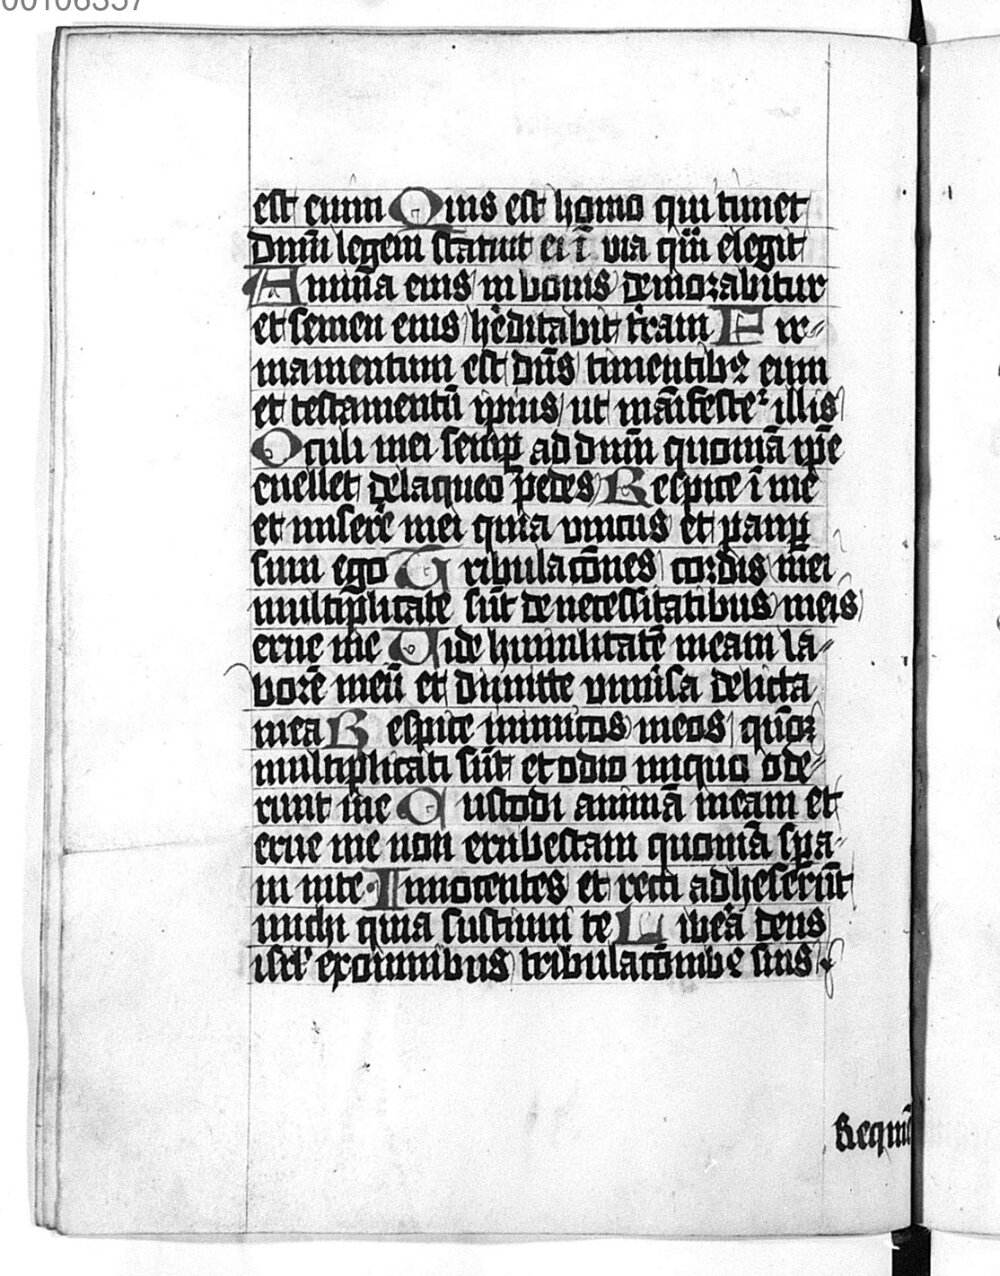 00106357
est eum Quis est homo qui timet
dnm̄ legem statuit ei ī via qm̄ elegit
Anima eius in bonis demorabitur
et semen eius hēditabit trām Fir-
mamentum est dn̄s timentibꝫ eum
et testamentū ipsius ut mānifestetᷣ illis
Oculi mei semꝑ ad dnm̄ quoniā ip̄e
euellet de laqueo pedes Respice ī me
et miserē mei quia vnicus et pauꝑ
sum ego Tribulacōnes cordis mei
multiplicate sūt de necessitatibus meis
erue me Vide humilitatē meam la-
borē meū et dimitte vniūsa delicta
mea Respice inimicos meos qm̄
multiplicati sūt et odio iniquo ode-
runt me Custodi animā meam et
erue me non erubescam quoniā sꝑa-
ui in te Innocentes et recti adheserūt
michi quia sustinui te Liberā deus
isrl̄ ex omnibus tribulacōnibꝫ suis
Requiē